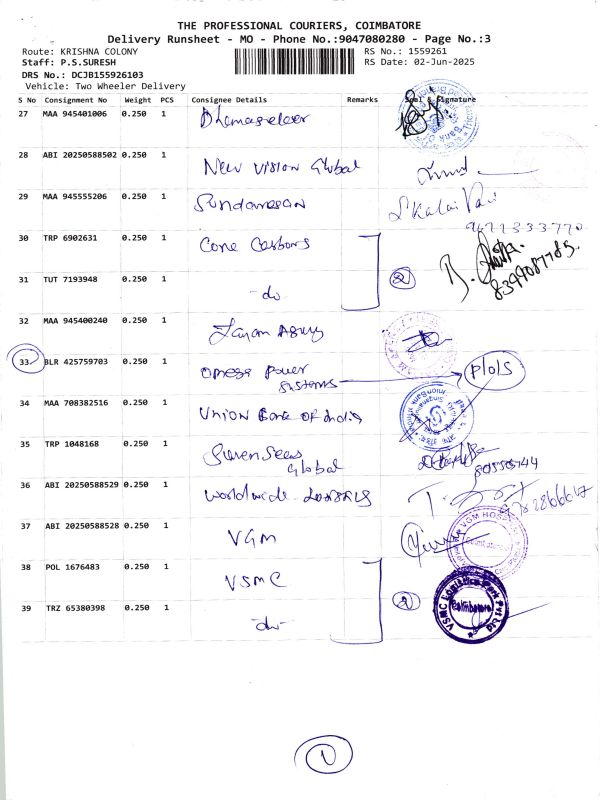 THE PROFESSIONAL COURIERS, COIMBATORE
Delivery Runsheet - MO - Phone No.:9047080280 - Page No.:3
Route: KRISHNA COLONY
RS No.: 1559261
Staff: P.S.SURESH
RS Date: 02-Jun-2025
DRS No.: DCJB155926103
Vehicle: Two Wheeler Delivery
S No Consignment No Weight PCS Consignee Details Remarks Seal & Signature
27 MAA 945401006 0.250 1
28 ABI 20250588502 0.250 1 New Vision Global
29 MAA 945555206 0.250 1 Sundaresan
30 TRP 6902631 0.250 1 Cone Carbons
31 TUT 7193948 0.250 1 -do-
2
32 MAA 945400240 0.250 1
33 BLR 425759703 0.250 1 Omega Power
Systems
P/O/S
34 MAA 708382516 0.250 1 Union Bank of India
35 TRP 1048168 0.250 1 Seven Seas
Global
36 ABI 20250588529 0.250 1 Worldwide
37 ABI 20250588528 0.250 1 VGM
38 POL 1676483 0.250 1 VSMC
39 TRZ 65380398 0.250 1 -do-
2
VSMC Logistics Park Pvt Ltd
Coimbatore
1